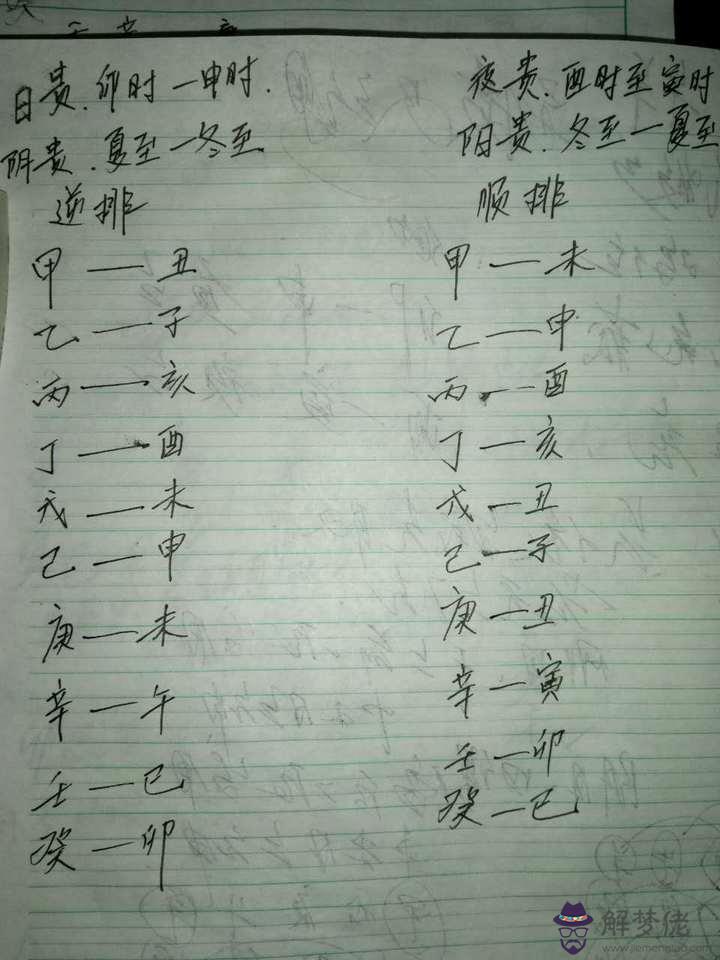 日贵.卯时一申时.
阴贵.夏至一冬至
逆排
甲一丑
乙一子
丙一亥
丁一酉
戊一未
己一申
庚一未
辛一午
壬一巳
癸一卯
夜贵.酉时至寅时
阳贵.冬至一夏至
顺排
甲一未
乙一申
丙一酉
丁一亥
戊一丑
己一子
庚一丑
辛一寅
壬一卯
癸一巳
解梦佬
www.jiemenglao.com